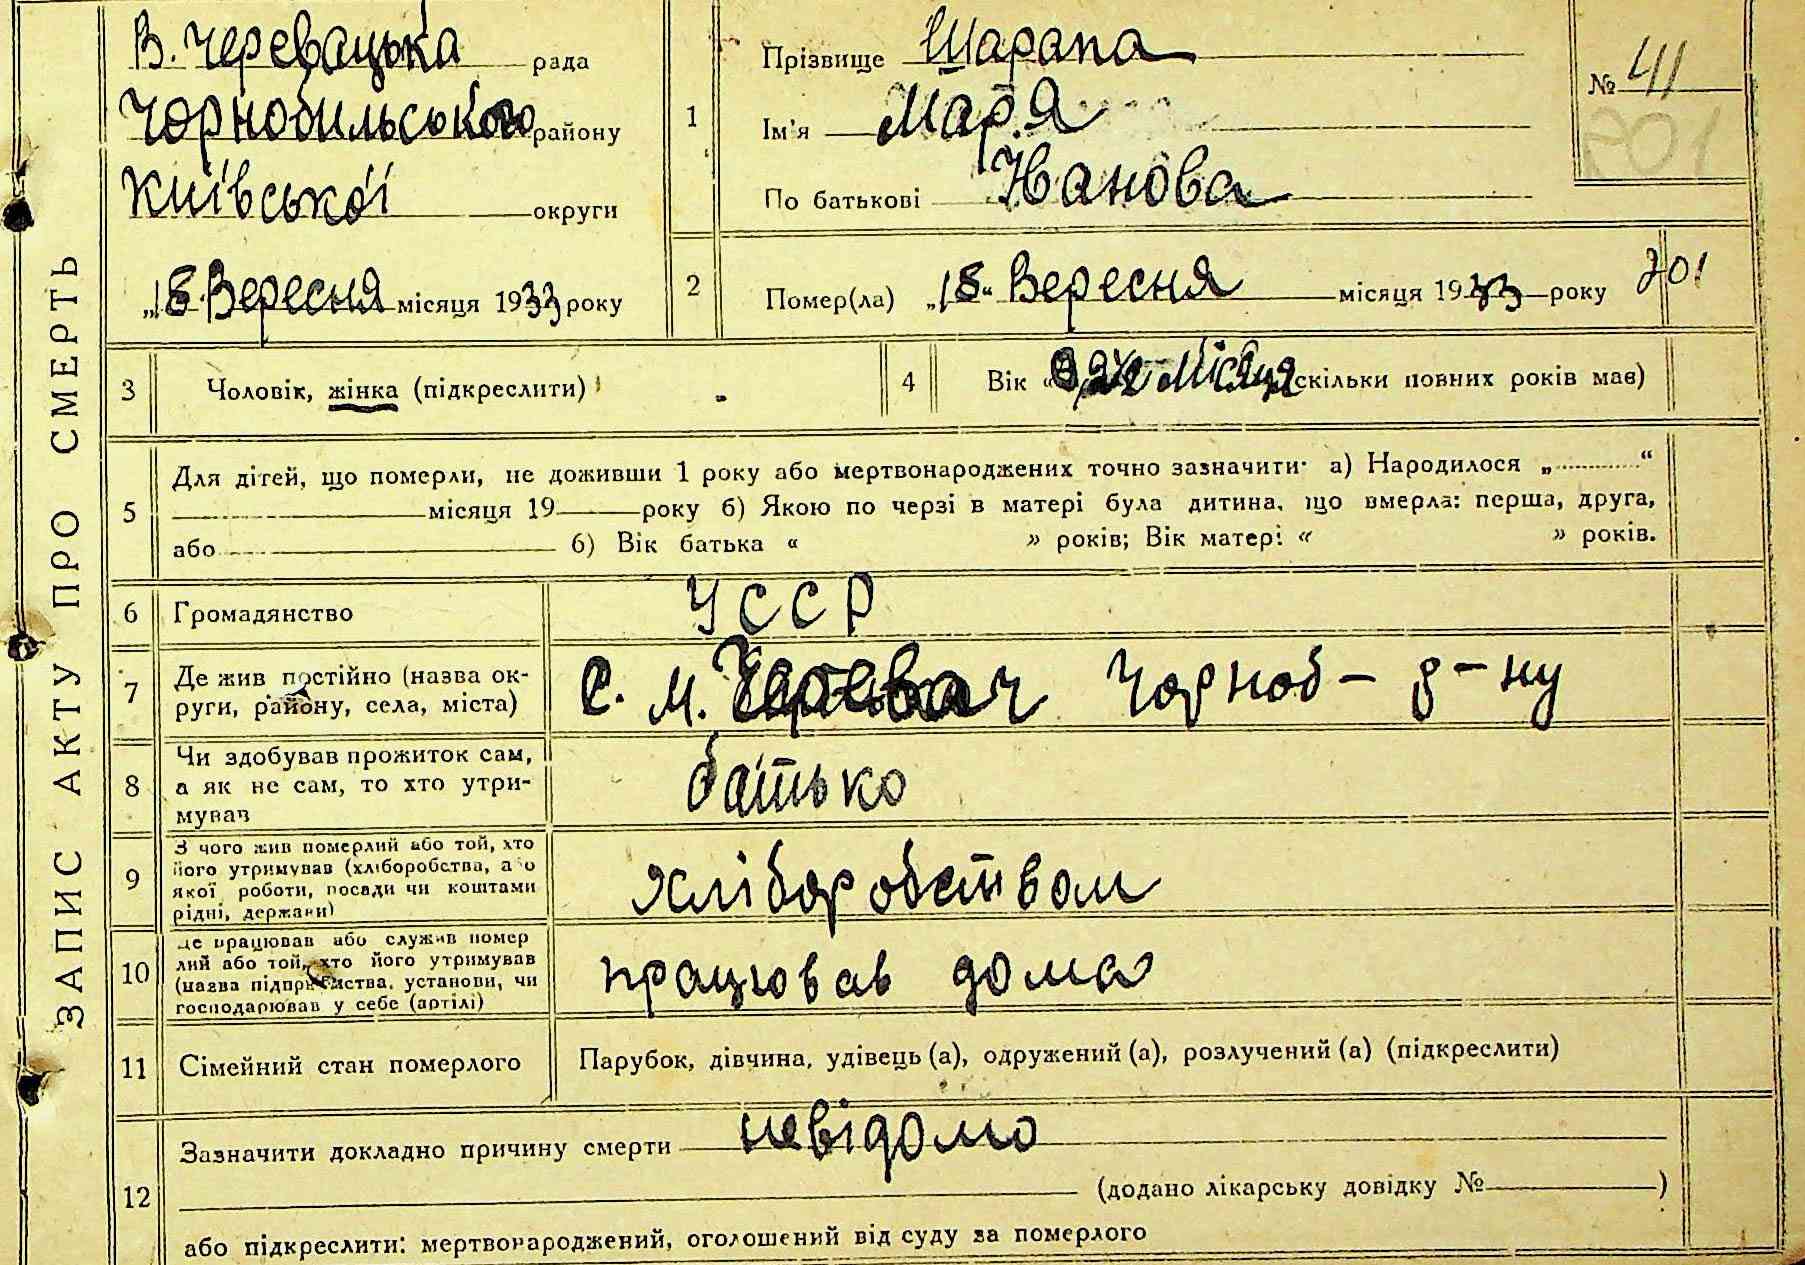 ЗАПИС АКТУ ПРО СМЕРТЬ
В. Черевацька рада
Чорнобильського району
Київської округи
місяця 1933 року
„ Вересня
1 Прізвище Шарапа
Ім'я Мар.я
По батькові Іванова
№ 41
201
2 Помер(ла) „18“ Вересня місяця 1933 року
201
3 Чоловік, жінка (підкреслити)
4 Вік « місяця скільки повних років має)
5 Для дітей, що померли, не доживши 1 року або мертвонароджених точно зазначити· а) Народилося „ “
місяця 19 року б) Якою по черзі в матері була дитина, що вмерла: перша, друга,
або б) Вік батька « » років; Вік матері « » років.
6 Громадянство УССР
7 Де жив постійно (назва ок-
руги, району, села, міста) С. М. Черевач Чорноб- р-ну
8 Чи здобував прожиток сам,
а як не сам, то хто утри-
мував батько
9 З чого жив померлий або той, хто
його утримував (хліборобства, або
якої роботи, посади чи коштами
рідні, держави) хліборобством
10 Де працював або служив помер
лий або той, хто його утримував
(назва підприємства, установи, чи
господарював у себе (артілі) працював дома
11 Сімейний стан померлого Парубок, дівчина, удівець (а), одружений (а), розлучений (а) (підкреслити)
12 Зазначити докладно причину смерти невідомо
(додано лікарську довідку № )
або підкреслити: мертвонароджений, оголошений від суду за померлого